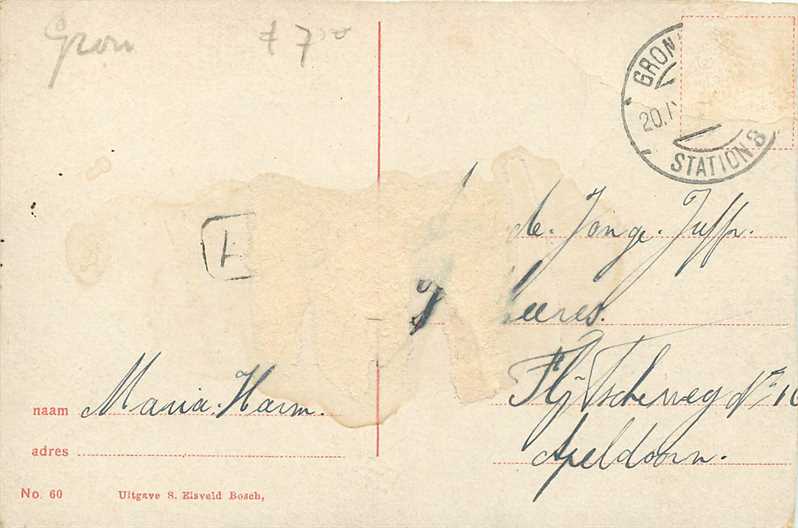 Gron
ƒ 7,50
GRON
20.
STATION 8
de. Jonge. Juffr.
Heeres.
weg No 16
Apeldoorn.
naam Maria. Harm.
adres
No. 60 Uitgave S. Elsveld Bosch,